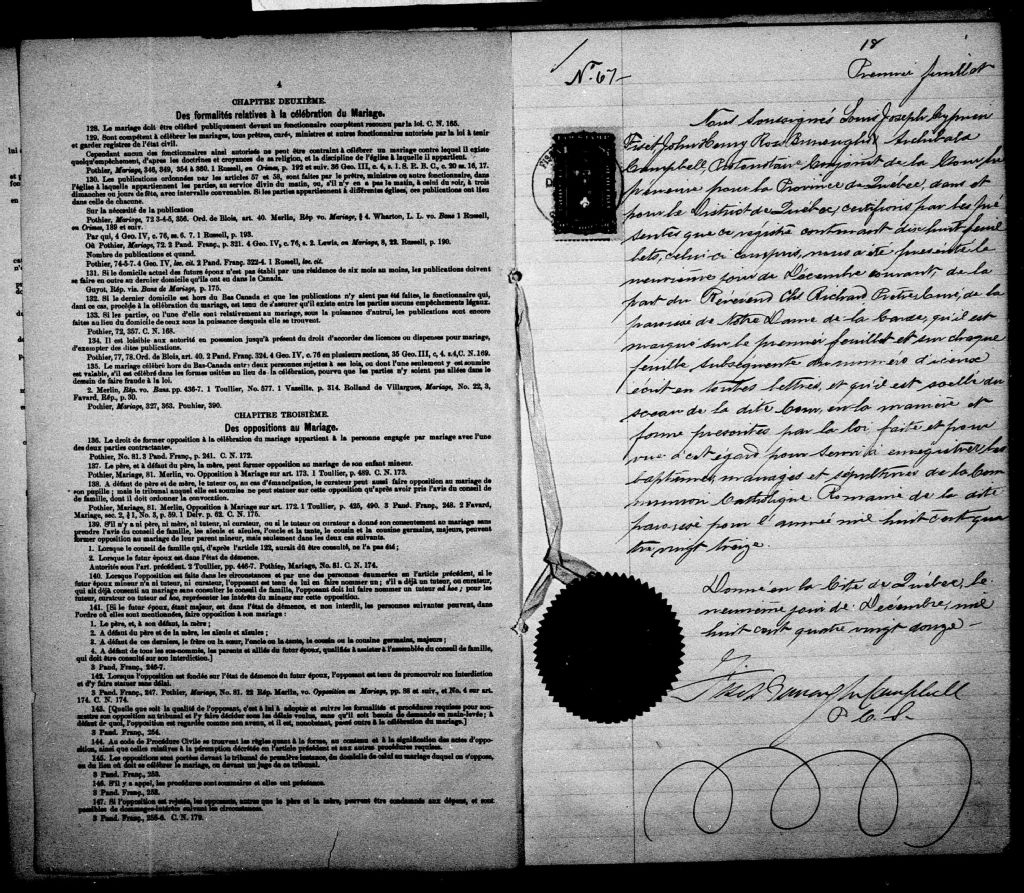 4
CHAPITRE DEUXIÈME.
Des formalités relatives à la célébration du Mariage.
128. Le mariage doit être célébré publiquement devant un fonctionnaire compétent reconnu par la loi. C. N. 165.
129. Sont compétents à célébrer les mariages, tous prêtres, curés, ministres et autres fonctionnaires autorisés par la loi à tenir
et garder registres de l'état civil.
Cependant aucun des fonctionnaires ainsi autorisés ne peut être contraint à célébrer un mariage contre lequel il existe
quelqu'empêchement, d'après les doctrines et croyances de sa religion, et la discipline de l'église à laquelle il appartient.
Pothier, Mariage, 346, 349, 354 & 360. 1 Russell, on Crimes, p. 192 et suiv. 36 Geo. III, c. 4, s. 1. S. R. B. C., c. 20 ss. 16, 17.
130. Les publications ordonnées par les articles 57 et 58, sont faites par le prêtre, ministre ou autre fonctionnaire, dans
l'église à laquelle appartiennent les parties, au service divin du matin, ou, s'il n'y en a pas le matin, à celui du soir, à trois
dimanches ou jours de fête, avec intervalle convenable. Si les parties appartiennent à différentes églises, ces publications ont lieu
dans celle de chacune.
Sur la nécessité de la publication
Pothier, Mariage, 72 3-4-5, 356. Ord. de Blois, art. 40. Merlin, Rép vo. Mariage, § 4. Wharton, L. L. vo. Bans 1 Russell,
on Crimes, 189 et suiv.
Par qui, 4 Geo. IV, c. 76, ss. 6. 7. 1 Russell, p. 193.
Où Pothier, Mariage, 72. 2 Pand. Franç., p. 321. 4 Geo. IV, c. 76, s. 2. Lewis, on Mariage, 8, 22. Russell, p. 190.
Nombre de publications et quand.
Pothier, 74-5-7. 4 Geo. IV, loc. cit. 2 Pand. Franç. 322-4. 1 Russell, loc. cit.
131. Si le domicile actuel des futurs époux n'est pas établi par une résidence de six mois au moins, les publications doivent
se faire en outre au dernier domicile qu'ils ont eu dans le Canada.
Guyot, Rép. vis. Bans de Mariage, p. 175.
132. Si le dernier domicile est hors du Bas-Canada et que les publications n'y aient pas été faites, le fonctionnaire qui,
dans ce cas, procède à la célébration du mariage, est tenu de s'assurer qu'il n'existe entre les parties aucuns empêchements légaux.
133. Si les parties, ou l'une d'elle sont relativement au mariage, sous la puissance d'autrui, les publications sont encore
faites au lieu du domicile de ceux sous la puissance desquels elle se trouvent.
Pothier, 72, 357. C. N. 168.
134. Il est loisible aux autorités en possession jusqu'à présent du droit d'accorder des licences ou dispenses pour mariage,
d'exempter des dites publications.
Pothier, 77, 78. Ord. de Blois, art. 40. 2 Pand. Franç. 324. 4 Geo. IV, c. 76 en plusieurs sections, 35 Geo. III, c, 4. s.4, C. N. 169.
135. Le mariage célébré hors du Bas-Canada entre deux personnes sujettes à ses lois, ou dont l'une seulement y est soumise
est valable, s'il est célébré dans les formes usitées au lieu de la célébration, pourvu que les parties n'y soient pas allées dans le
dessein de faire fraude à la loi.
2. Merlin, Rép. vo. Bans. pp. 436-7. 1 Toullier, No. 577. 1 Vazeille. p. 314. Rolland de Villargues, Mariage, No. 22, 3,
Favard, Rép., p. 30.
Pothier, Mariage, 327, 363. Pouhier, 390.
CHAPITRE TROISIÈME.
Des oppositions au Mariage.
136. Le droit de former opposition à la célébration du mariage appartient à la personne engagée par mariage avec l'une
des deux parties contractantes.
Pothier, No. 81. 3 Pand. Franç., p. 241. C. N. 172.
137. Le père, et à défaut du père, la mère, peut former opposition au mariage de son enfant mineur.
Pothier, Mariage, 81. Merlin, vo. Opposition à Mariage sur art. 173. 1 Toullier, p. 489. C. N. 173.
138. A défaut de père et de mère, le tuteur ou, au cas d'émancipation, le curateur peut aussi faire opposition au mariage de
son pupille; mais le tribunal auquel elle est soumise ne peut statuer sur cette opposition qu'après avoir pris l'avis du conseil de
de famille, dont il doit ordonner la convocation.
Pothier, Mariage, 81. Merlin, Opposition à Mariage sur art. 172. 1 Toullier, p. 425, 490. 3 Pand. Franç., 248. 2 Favard,
Mariage, sec. 2, § 1, No. 3, p. 59. 1 Delv. p. 62. C. N. 175.
139. S'il n'y a ni père, ni mère, ni tuteur, ni curateur, ou si le tuteur ou curateur a donné son consentement au mariage sans
prendre l'avis du conseil de famille, les aïeuls et aïeules, l'oncle et la tante, le cousin et la cousine germains, majeurs, peuvent
former opposition au mariage de leur parent mineur, mais seulement dans les deux cas suivants.
1. Lorsque le conseil de famille qui, d'après l'article 122, aurait dû être consulté, ne l'a pas été;
2. Lorsque le futur époux est dans l'état de démence.
Autorités sous l'art. précédent. 2 Toullier, pp. 446-7. Pothier, Mariage, No. 81. C. N. 174.
140. Lorsque l'opposition est faite dans les circonstances et par une des personnes énumérées en l'article précédent, si le
futur époux mineur n'a ni tuteur, ni curateur, l'opposant est tenu de lui en faire nommer un; s'il a déjà un tuteur, ou curateur,
qui ait déjà consenti au mariage sans consulter le conseil de famille, l'opposant doit lui faire nommer un tuteur ad hoc; pour les
tuteur, curateur ou tuteur ad hoc, représenter les intérêts du mineur sur cette opposition.
141. [Si le futur époux, étant majeur, est dans l'état de démence, et non interdit, les personnes suivantes peuvent, dans
l'ordre où elles sont mentionnées, faire opposition à son mariage:
1. Le père, et, à son défaut, la mère;
2. A défaut du père et de la mère, les aïeuls et aïeules;
3. A défaut de ces derniers, le frère ou la sœur, l'oncle ou la tante, le cousin ou la cousine germains, majeurs;
4. A défaut de tous les sus-nommés, les parents et alliés du futur époux, qualifiés à assister à l'assemblée du conseil de famille,
qui doit être consulté sur son interdiction.]
3 Pand, Franç., 246-7.
142. Lorsque l'opposition est fondée sur l'état de démence du futur époux, l'opposant est tenu de promouvoir son interdiction
et d'y faire statuer sans délai.
3 Pand. Franç., 247. Pothier, Mariage, No. 81. 22 Rép. Merlin, vo. Opposition au Mariage, pp. 38 et suiv., et No. 4 sur art.
174. C. N. 174.
143. [Quelle que soit la qualité de l'opposant, c'est à lui à adopter et suivre les formalités et procédures requises pour sou-
mettre son opposition au tribunal et l'y faire décider sous les délais voulus, sans qu'il soit besoin de demande en main-levée; à
défaut de quoi, l'opposition est regardée comme non avenue, et il est, nonobstant, passé outre à la célébration du mariage.]
3 Pand. Franç., 254.
144. Au code de Procédure Civile se trouvent les règles quant à la forme, au contenu et à la signification des actes d'oppo-
sition, ainsi que celles relatives à la péremption décrétée en l'article précédent et aux autres procédures requises.
145. Les oppositions sont portées devant le tribunal de première instance, du domicile de celui au mariage duquel on s'oppose,
ou du lieu où doit se célébrer le mariage, ou devant un juge de ce tribunal.
3 Pand. Franç., 253.
146. S'il y a appel, les procédures sont sommaires et elles ont préséance.
3 Pand. Franç., 253.
147. Si l'opposition est rejetée, les opposants, autres que le père et la mère, peuvent être condamnés aux dépens, et sont
passibles de dommages-intérêts suivant les circonstances.
3 Pand. Franç., 255-6. C. N. 179.
18
No. 67
Premier feuillet
Nous soussignés Louis Joseph Cyprien
Fiset, John Henry Ross Burroughs Archibald
Campbell, Protonotaire Conjoint de la Cour Su
périeure pour la Province de Québec, dans et
pour le District de Québec, certifions par les pré
sentes que ce registre contenant dix huit feuil
lets, celui ci compris, nous a été présenté le
neuvième jour de Décembre courant, de la
part du Révérend Chs Richard Ptre Curé, de la
paroisse de Notre Dame de la Garde, qu'il est
marqué sur le premier feuillet et sur chaque
feuille subséquente du numéro d'iceux
écrit en toutes lettres, et qu'il est scellé du
sceau de la dite Cour, en la manière et
forme prescrites par la loi faite et pour
vue à cet égard pour servir à enregistrer les
baptêmes, mariages et sépultures de la Com
munion Catholique Romaine de la dite
paroisse pour l'année mil huit cent qua
tre vingt treize.
Donné en la Cité de Québec, le
neuvième jour de Décembre, mil
huit cent quatre vingt douze
Fiset Burroughs Campbell
P. C. S.